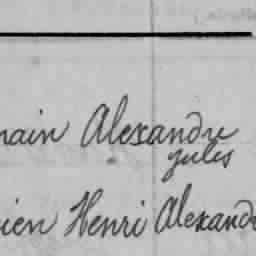 main Alexandre
Jules
ien Henri Alexand